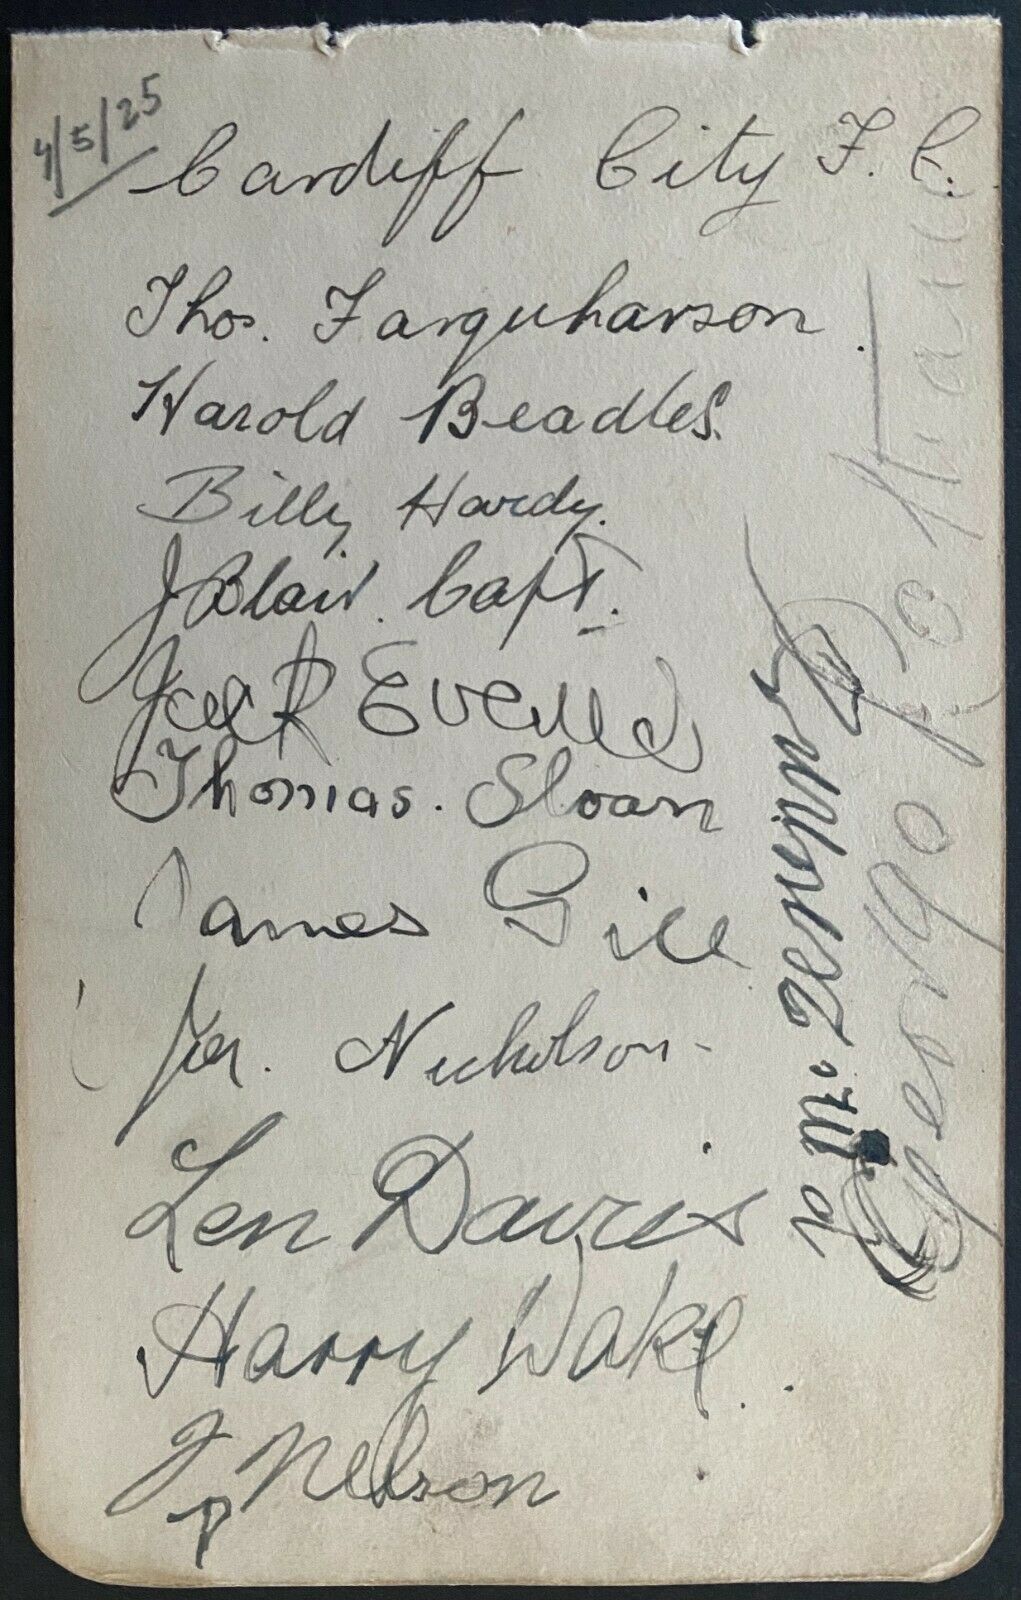 4/5/25
Cardiff City F. C.
Thos. Farquharson.
Harold Beadles.
Billy Hardy.
J Blair. Capt.
Jack Evans
Thomas. Sloan
James Gill
Jos. Nicholson-
Len Davies
Harry Wake.
J Nelson